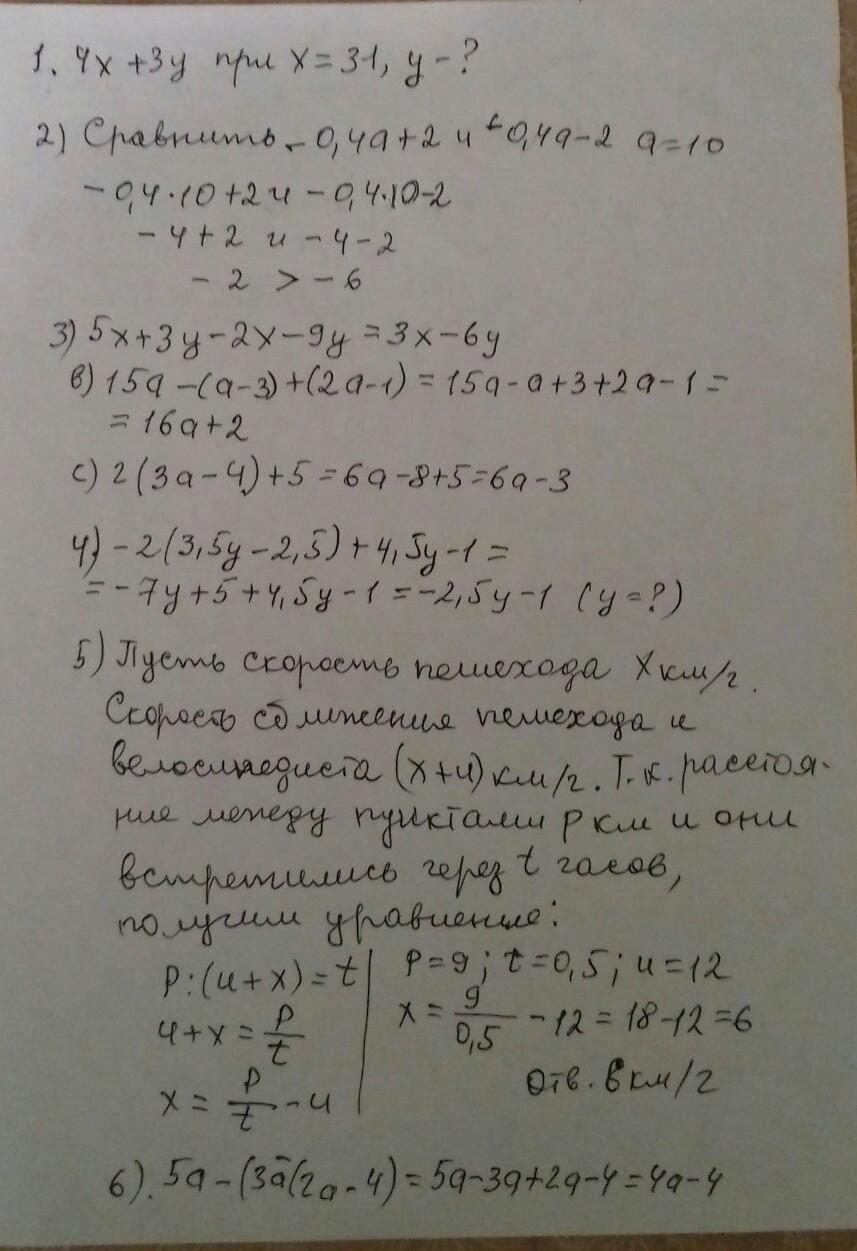 1. 4x + 3y при x = 31, y - ?
2) Сравнить - 0,4a + 2 и - 0,4a - 2 a = 10
- 0,4 · 10 + 2 и - 0,4 · 10 - 2
- 4 + 2 и - 4 - 2
- 2 > - 6
3) 5x + 3y - 2x - 9y = 3x - 6y
в) 15a - (a - 3) + (2a - 1) = 15a - a + 3 + 2a - 1 =
= 16a + 2
с) 2(3a - 4) + 5 = 6a - 8 + 5 = 6a - 3
4) - 2(3,5y - 2,5) + 4,5y - 1 =
= - 7y + 5 + 4,5y - 1 = - 2,5y - 1 (y = ?)
5) Пусть скорость пешехода x км/г.
Скорость сближения пешехода и
велосипедиста (x + u) км/г. Т. к. расстоя-
ние между пунктами p км и они
встретились через t часов,
получим уравнение:
p : (u + x) = t
u + x = p/t
x = p/t - u
p = 9; t = 0,5; u = 12
x = 9/0,5 - 12 = 18 - 12 = 6
Отв. 6 км/г
6). 5a - (3a - (2a - 4) = 5a - 3a + 2a - 4 = 4a - 4